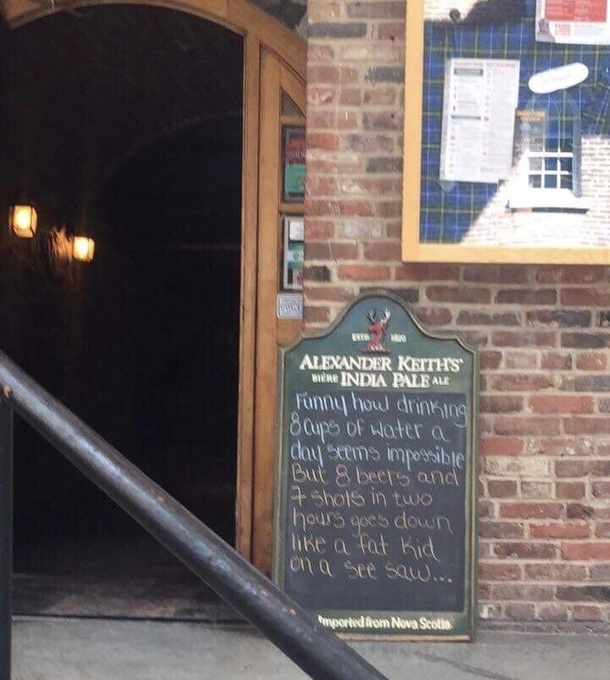 ESTD 1820
ALEXANDER KEITH'S
BIÈRE INDIA PALE ALE
Funny how drinking
8 cups of water a
day seems impossible
But 8 beers and
7 shots in two
hours goes down
like a fat kid
on a see saw...
Imported from Nova Scotia